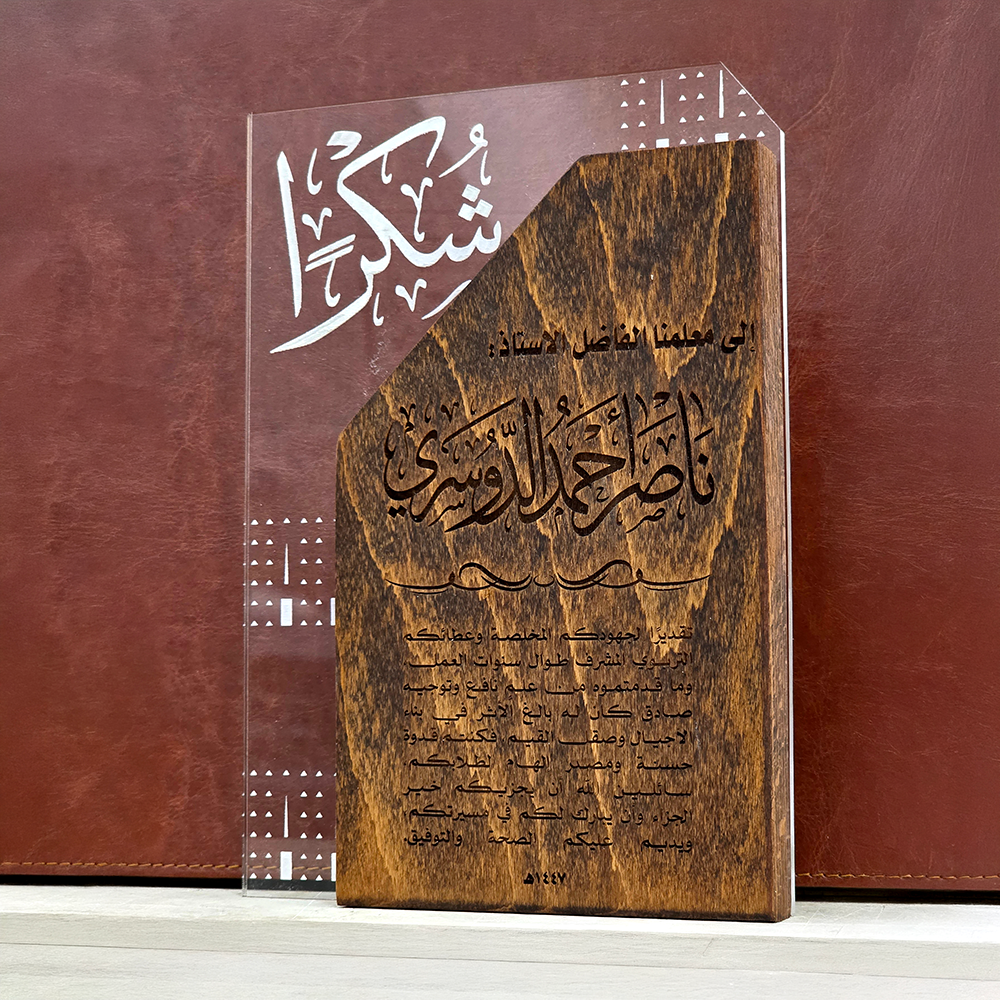 شُكرًا
إلى معلمنا الفاضل الاستاذ:
نَاصر أحمَدُ الدَّوُسَري
تقديرًا لجهودكم المخلصة وعطائكم
التربوي المشرف طوال سنوات العمل،
وما قدمتموه من علم نافع وتوجيه
صادق كان له بالغ الاثر في بناء
الاجيال وصقل القيم، فكنتم قدوة
حسنة ومصدر إلهام لطلابكم
سائلين الله أن يجزيكم خير
الجزاء وأن يبارك لكم في مسيرتكم،
ويديم عليكم الصحة والتوفيق.
١٤٤٧هـ